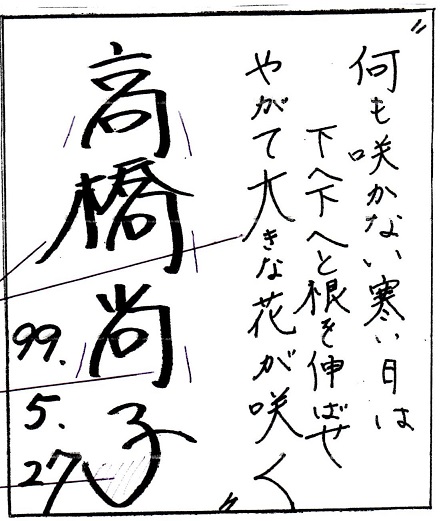 何も咲かない寒い日は
下へ下へと根を伸ばせ
やがて大きな花が咲く
高橋尚子
99.
5.
27